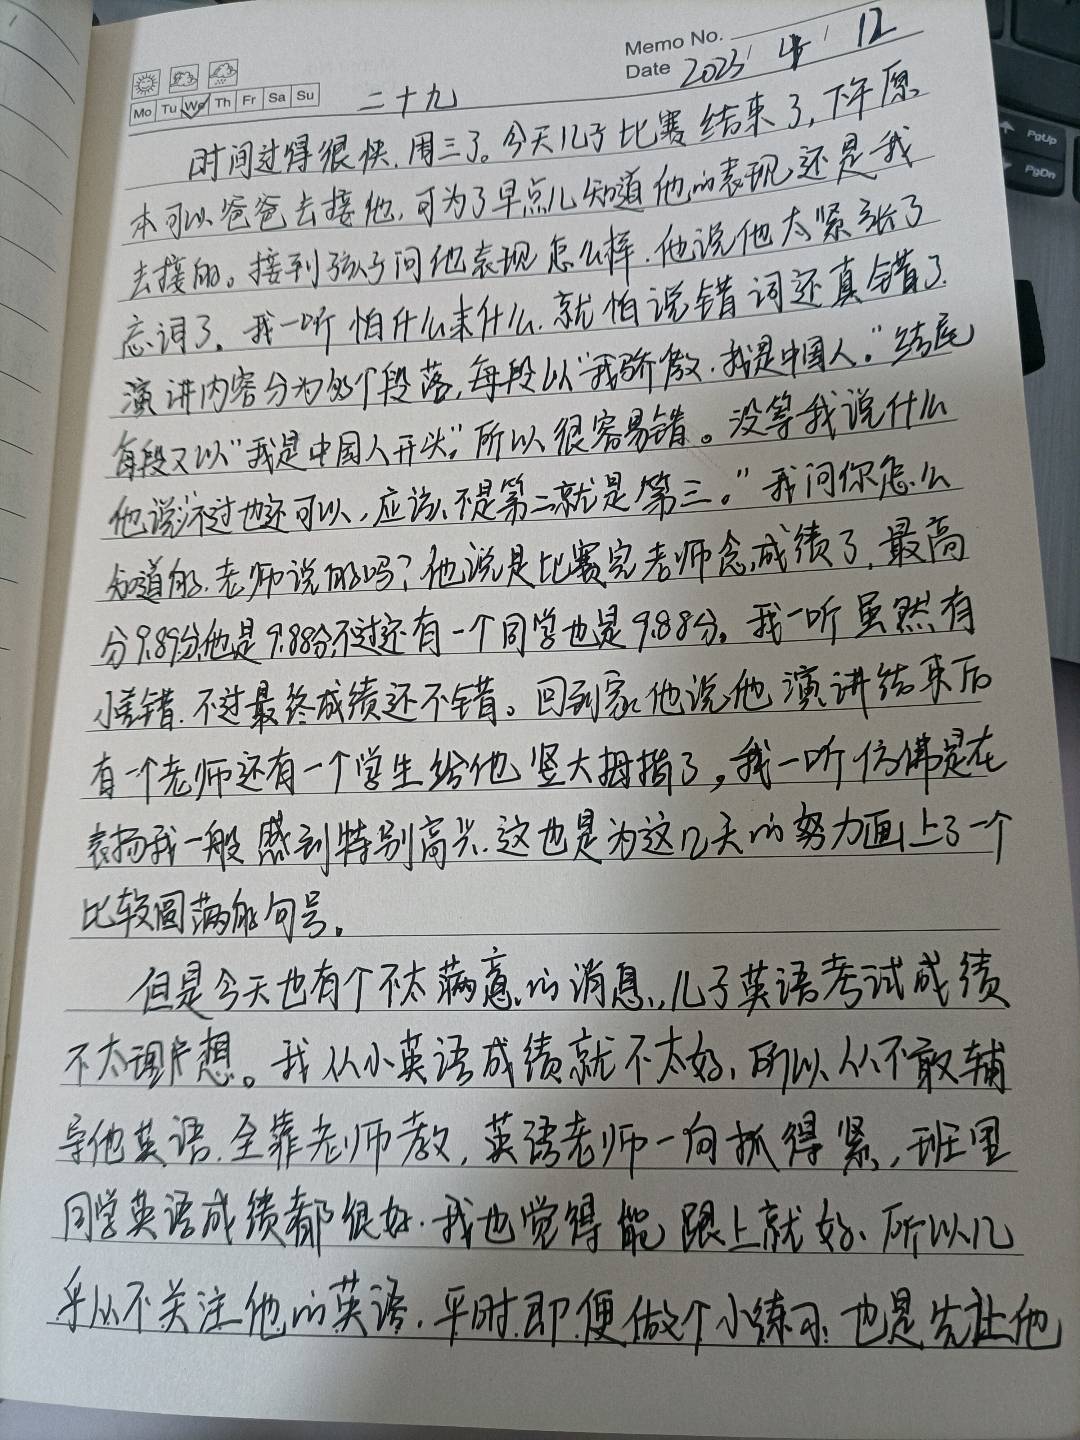 Memo No.
Date 2023/4/12
Mo Tu We Th Fr Sa Su
二十九
时间过得很快,周三了。今天儿子比赛结束了,下午原
本可以爸爸去接他,可为了早点儿知道他的表现还是我
去接的。接到孩子问他表现怎么样,他说他太紧张了
忘词了,我一听怕什么来什么,就怕说错词还真错了.
演讲内容分为多个段落,每段以“我骄傲,我是中国人。”结尾
每段又以“我是中国人开头”,所以很容易错。没等我说什么
他说“不过也还可以,应该不是第二就是第三。”我问你怎么
知道的,老师说的吗?他说是比赛完老师念成绩了,最高
分9.89分,他是9.88分,不过还有一个同学也是9.88分,我一听虽然有
小差错,不过最终成绩还不错。回到家他说他演讲结束后
有一个老师还有一个学生给他竖大拇指了,我一听仿佛是在
表扬我一般感到特别高兴,这也是为这几天的努力画上了一个
比较圆满的句号。
但是今天也有个不太满意的消息,儿子英语考试成绩
不太理想。我从小英语成绩就不太好,所以从不敢辅
导他英语,全靠老师教,英语老师一向抓得紧,班里
同学英语成绩都很好,我也觉得能跟上就好,所以几
乎从不关注他的英语,平时即便做个小练习,也是先让他